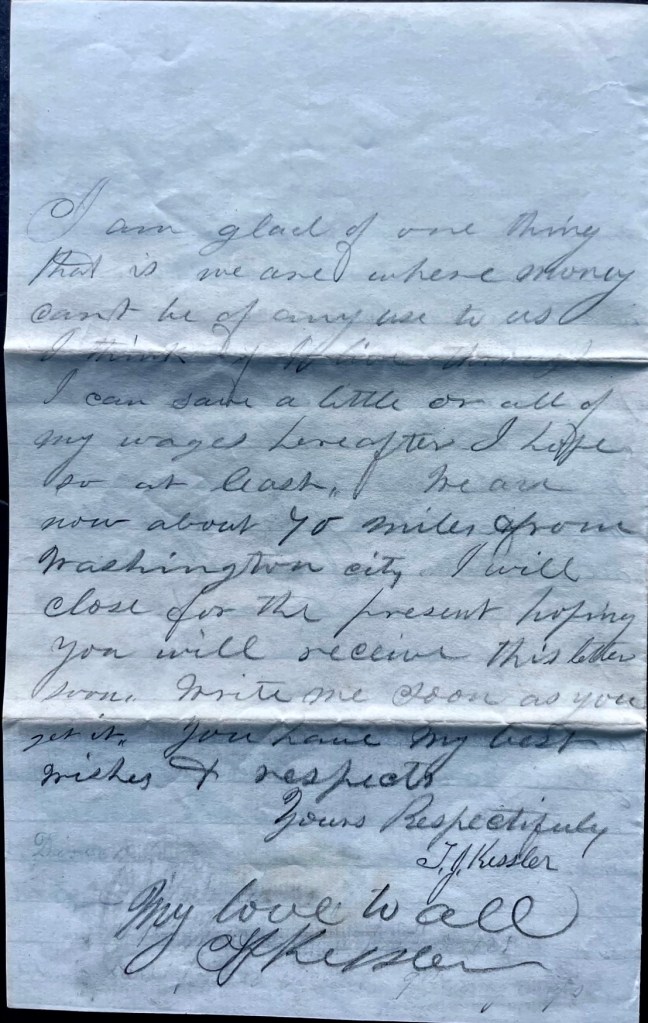 I am glad of one thing
that is we are where money
cant be of any use to us
I think if I live through
I can save a little or all of
my wages hereafter I hope
so at least. We are
now about 70 miles from
Washington city I will
close for the present hoping
you will receive this letter
soon. Write me soon as you
get it. You have my best
wishes & respects
Yours Respectifuly
T. J. Kessler
My love to all
Kessler